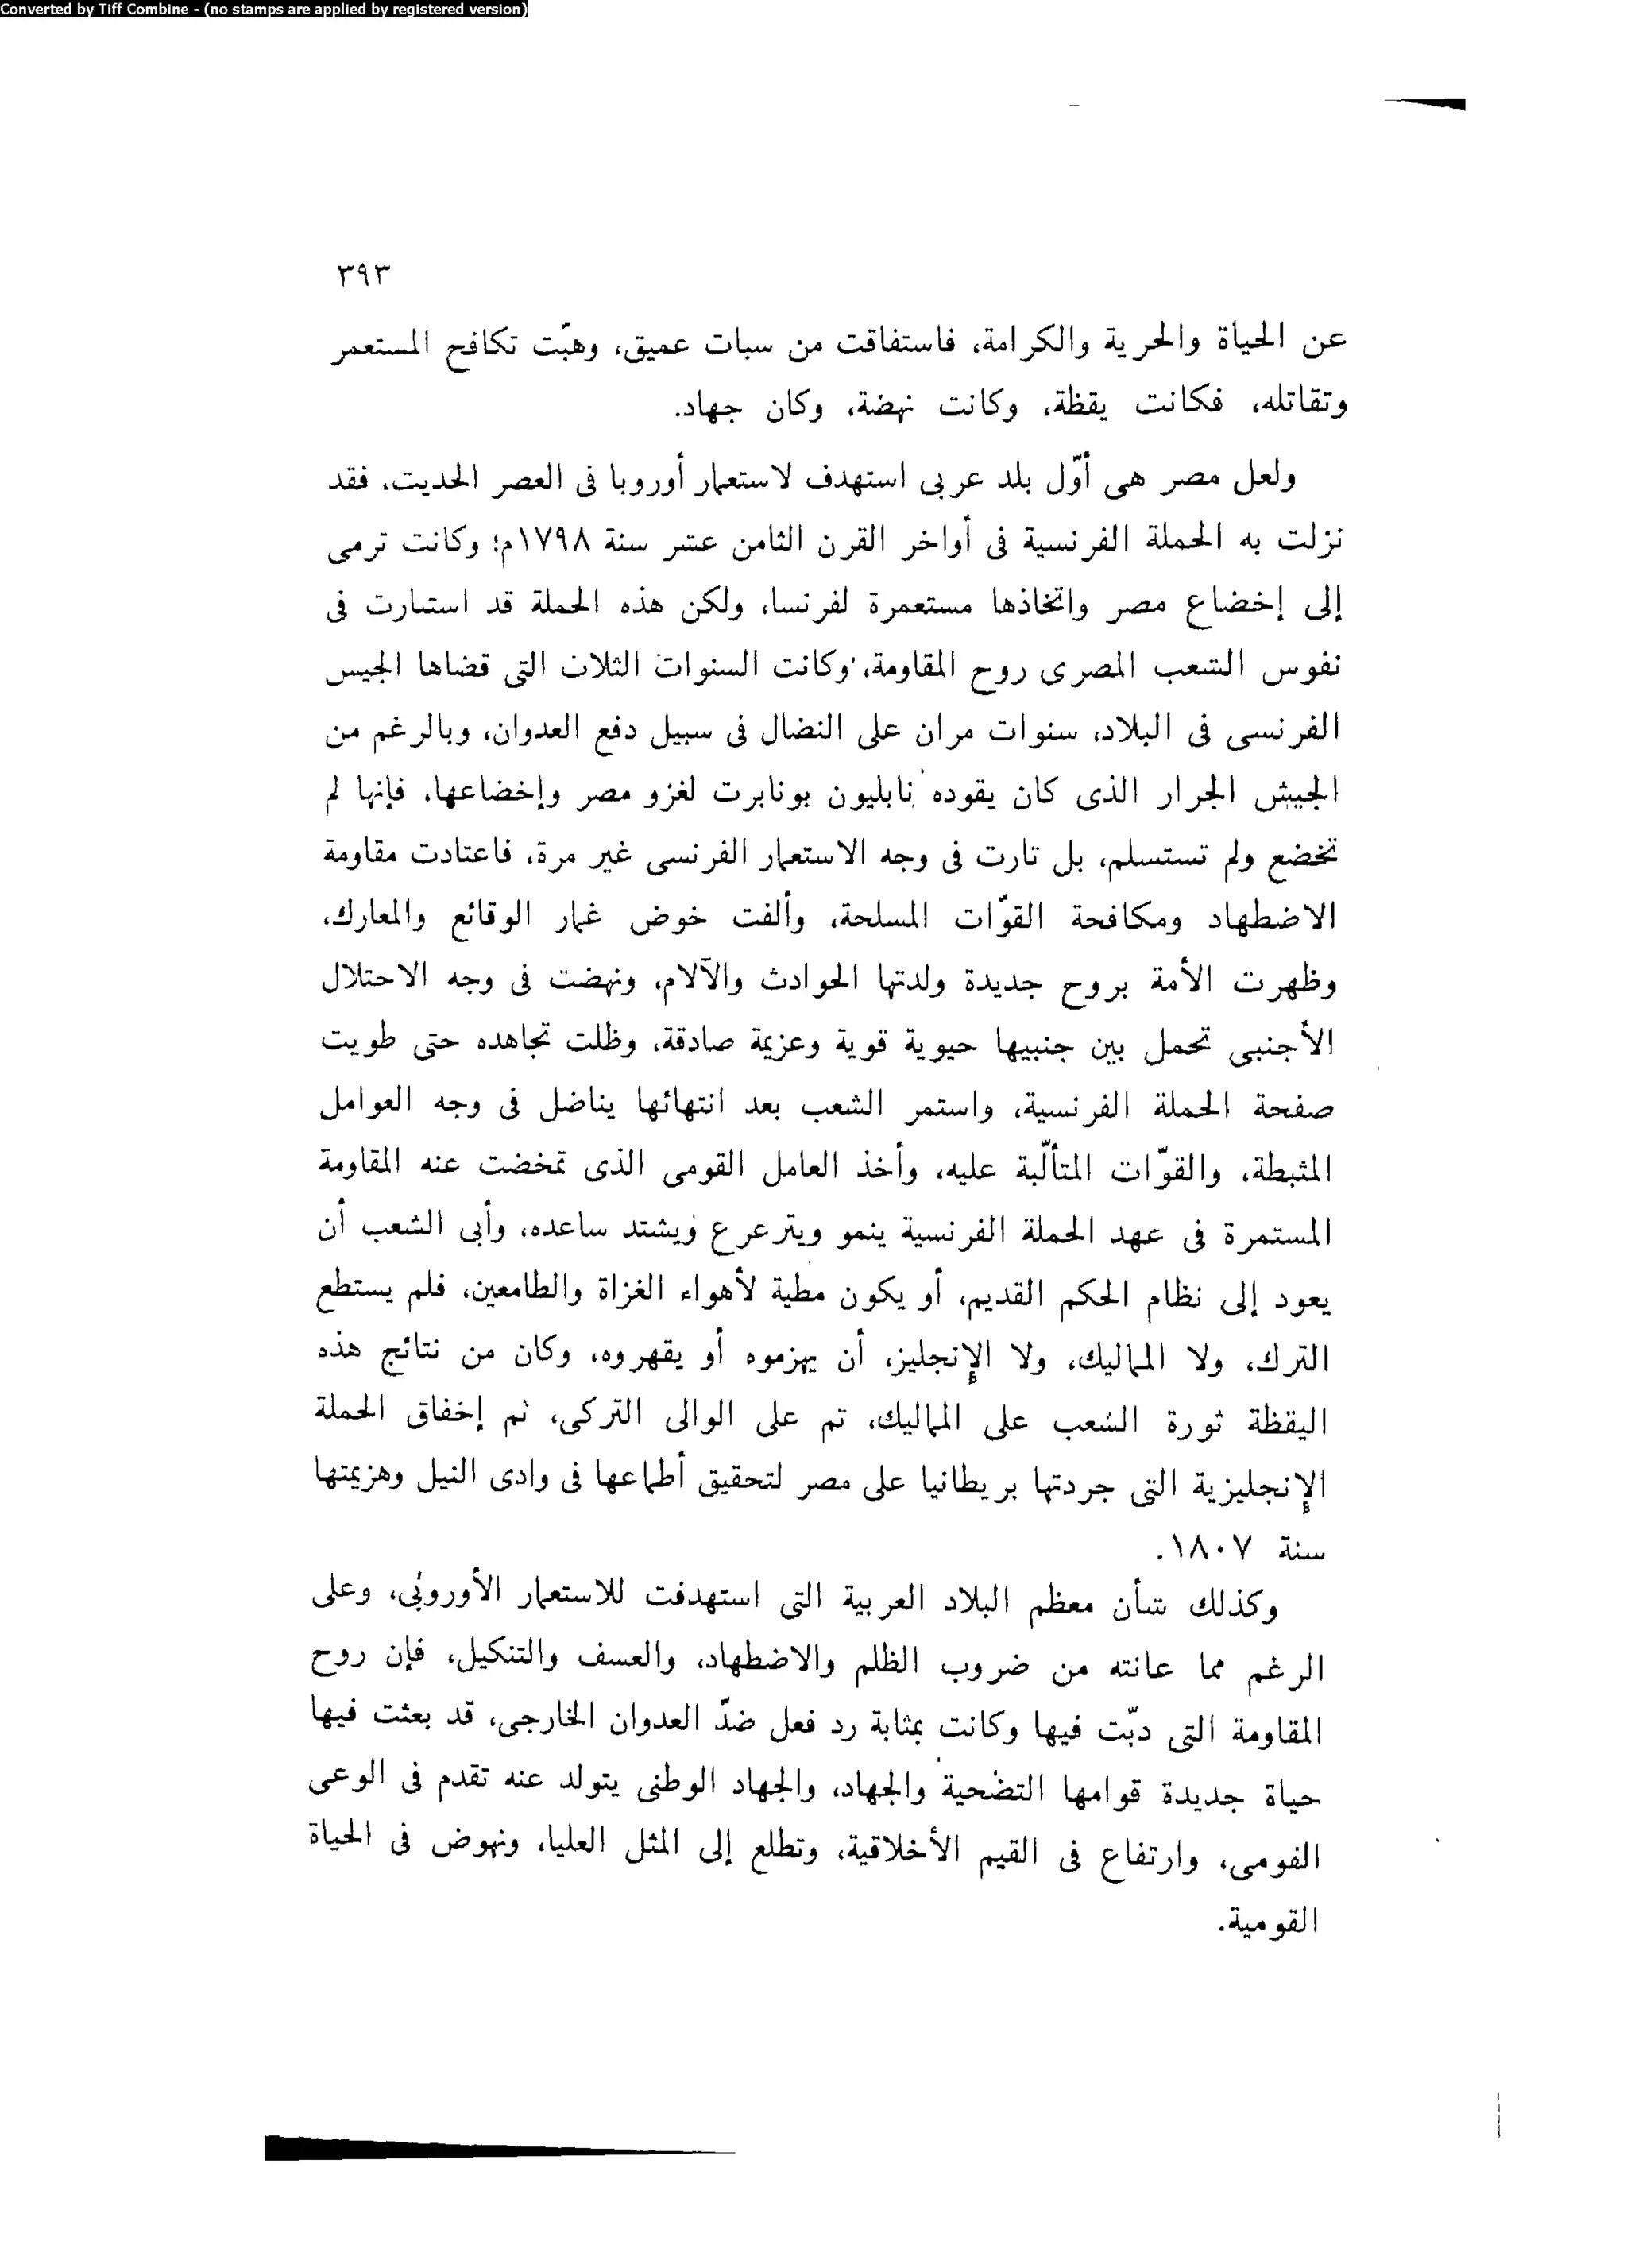 Converted by Tiff Combine - (no stamps are applied by registered version)
٣٩٣
عن الحياة والحرية والكرامة، فاستفاقت من سبات عميق، وهبّت تكافح المستعمر
وتقاتله، فكانت يقظة، وكانت نهضة، وكان جهاد.
ولعل مصر هى أوّل بلد عربى استهدف لاستعمار أوروبا فى العصر الحديث، فقد
نزلت به الحملة الفرنسية فى أواخر القرن الثامن عشر سنة ١٧٩٨م؛ وكانت ترمى
إلى إخضاع مصر واتخاذها مستعمرة لفرنسا، ولكن هذه الحملة قد استثارت فى
نفوس الشعب المصرى روح المقاومة، وكانت السنوات الثلاث التى قضاها الجيش
الفرنسى فى البلاد، سنوات مران على النضال فى سبيل دفع العدوان، وبالرغم من
الجيش الجرار الذى كان يقوده نابليون بونابرت لغزو مصر وإخضاعها، فإنها لم
تخضع ولم تستسلم، بل ثارت فى وجه الاستعمار الفرنسى غير مرة، فاعتادت مقاومة
الاضطهاد ومكافحة القوّات المسلحة، وألفت خوض غمار الوقائع والمعارك،
وظهرت الأمة بروح جديدة ولدتها الحوادث والآلام، ونهضت فى وجه الاحتلال
الأجنبى تحمل بين جنبيها حيوية قوية وعزيمة صادقة، وظلت تجاهده حتى طويت
صفحة الحملة الفرنسية، واستمر الشعب بعد انتهائها يناضل فى وجه العوامل
المثبطة، والقوّات المتألّبة عليه، وأخذ العامل القومى الذى تمخضت عنه المقاومة
المستمرة فى عهد الحملة الفرنسية ينمو ويترعرع ويشتد ساعده، وأبى الشعب أن
يعود إلى نظام الحكم القديم، أو يكون مطية لأهواء الغزاة والطامعين، فلم يستطع
الترك، ولا المماليك، ولا الإنجليز، أن يهزموه أو يقهروه، وكان من نتائج هذه
اليقظة ثورة الشعب على المماليك، ثم على الوالى التركى، ثم إخفاق الحملة
الإنجليزية التى جردتها بريطانيا على مصر لتحقيق أطماعها فى وادى النيل وهزيمتها
سنة ١٨٠٧.
وكذلك شأن معظم البلاد العربية التى استهدفت للاستعمار الأوروبى، وعلى
الرغم مما عانته من ضروب الظلم والاضطهاد، والعسف والتنكيل، فإن روح
المقاومة التى دبّت فيها وكانت بمثابة رد فعل ضدّ العدوان الخارجى، قد بعثت فيها
حياة جديدة قوامها التضحية والجهاد، والجهاد الوطنى يتولد عنه تقدم فى الوعى
القومى، وارتفاع فى القيم الأخلاقية، وتطلع إلى المثل العليا، ونهوض فى الحياة
القومية.